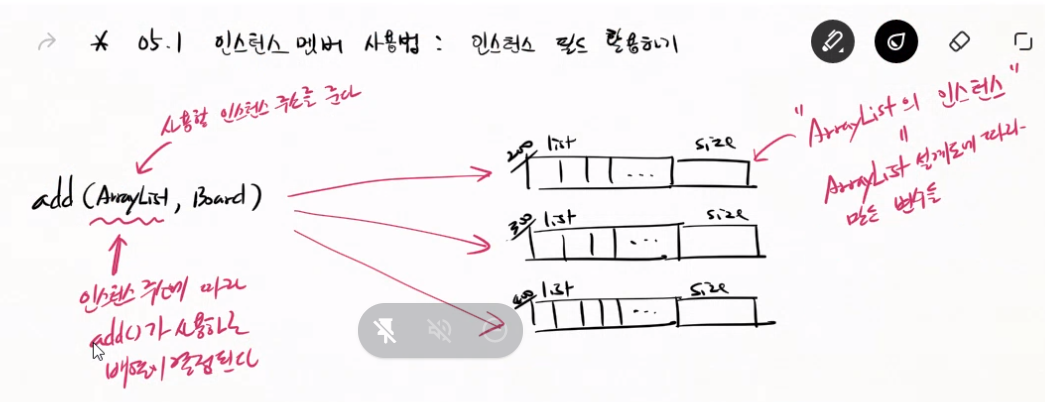 * 05.1 인스턴스 멤버 사용법 : 인스턴스 필드 활용하기
사용할 인스턴스 주소를 준다
add (ArrayList, Board)
인스턴스 주소에 따라
add()가 사용하는
배열이 결정된다
200 list size
300 list size
400 list size
"ArrayList의 인스턴스"
"
ArrayList 설계도에 따라
만든 변수들